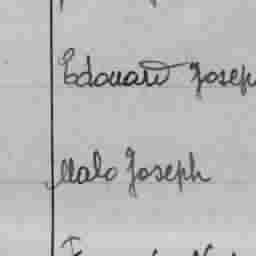 Edouard Joseph
Malo Joseph